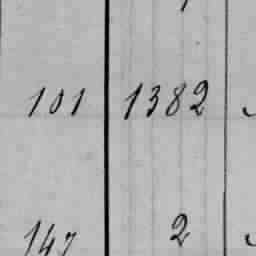 101 1382
147 2